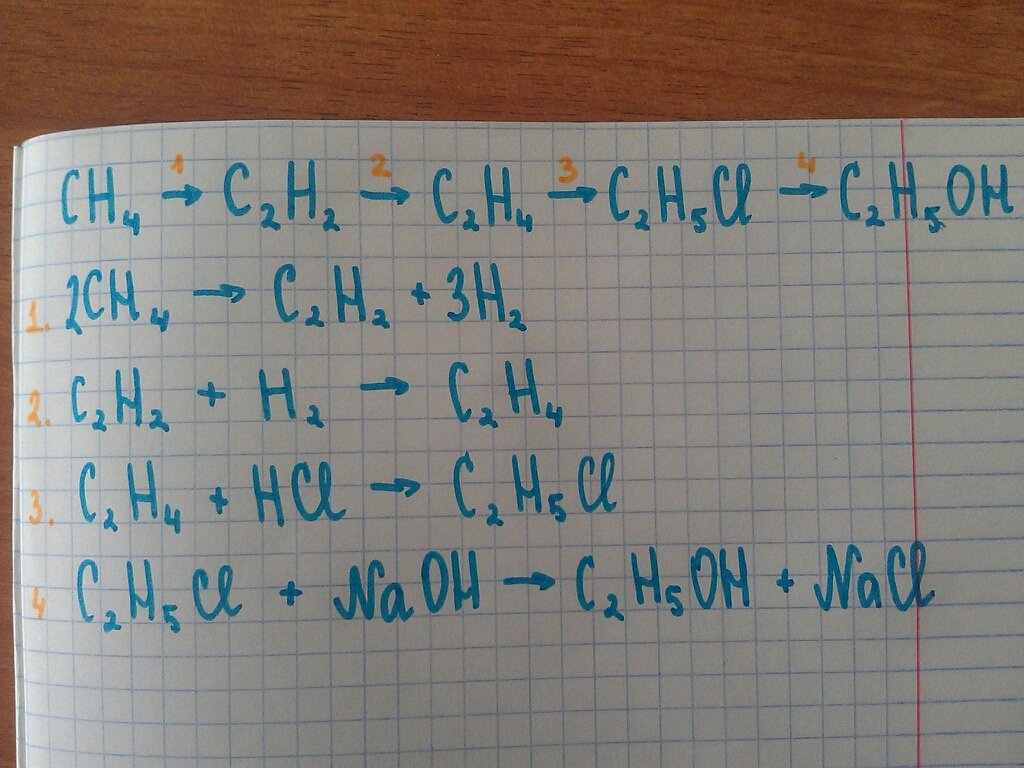 CH₄ →¹ C₂H₂ →² C₂H₄ →³ C₂H₅Cl →⁴ C₂H₅OH
1. 2CH₄ → C₂H₂ + 3H₂
2. C₂H₂ + H₂ → C₂H₄
3. C₂H₄ + HCl → C₂H₅Cl
4 C₂H₅Cl + NaOH → C₂H₅OH + NaCl